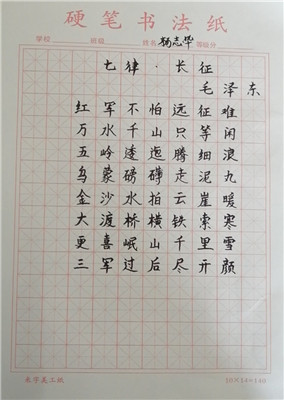 硬笔书法纸
学校 班级 姓名 杨志华 等级分
七律·长征
毛泽东
红军不怕远征难
万水千山只等闲
五岭逶迤腾细浪
乌蒙磅礴走泥丸
金沙水拍云崖暖
大渡桥横铁索寒
更喜岷山千里雪
三军过后尽开颜
米字美工纸 10×14=140